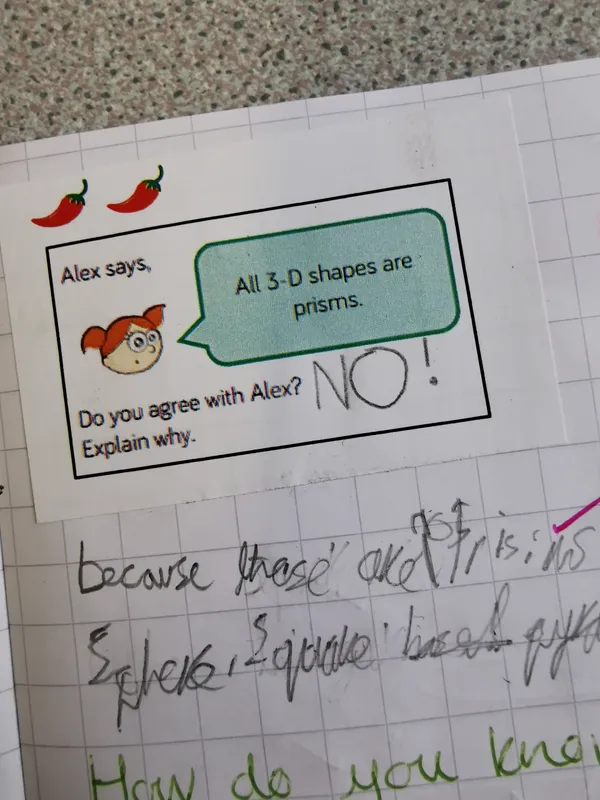 Alex says,
All 3-D shapes are
prisms.
Do you agree with Alex? NO!
Explain why.
because these are not Prisims
Sphere, Square based pyra
How do you know